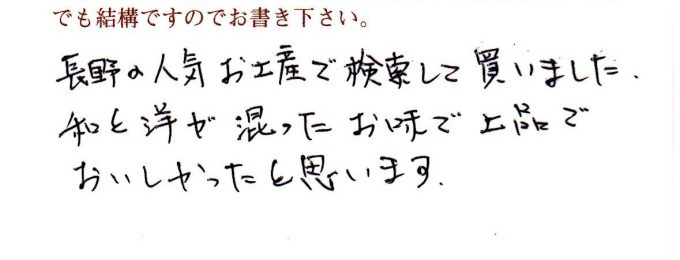 でも結構ですのでお書き下さい。
長野の人気お土産で検索して買いました.
和と洋が混ったお味で上品で
おいしかったと思います.